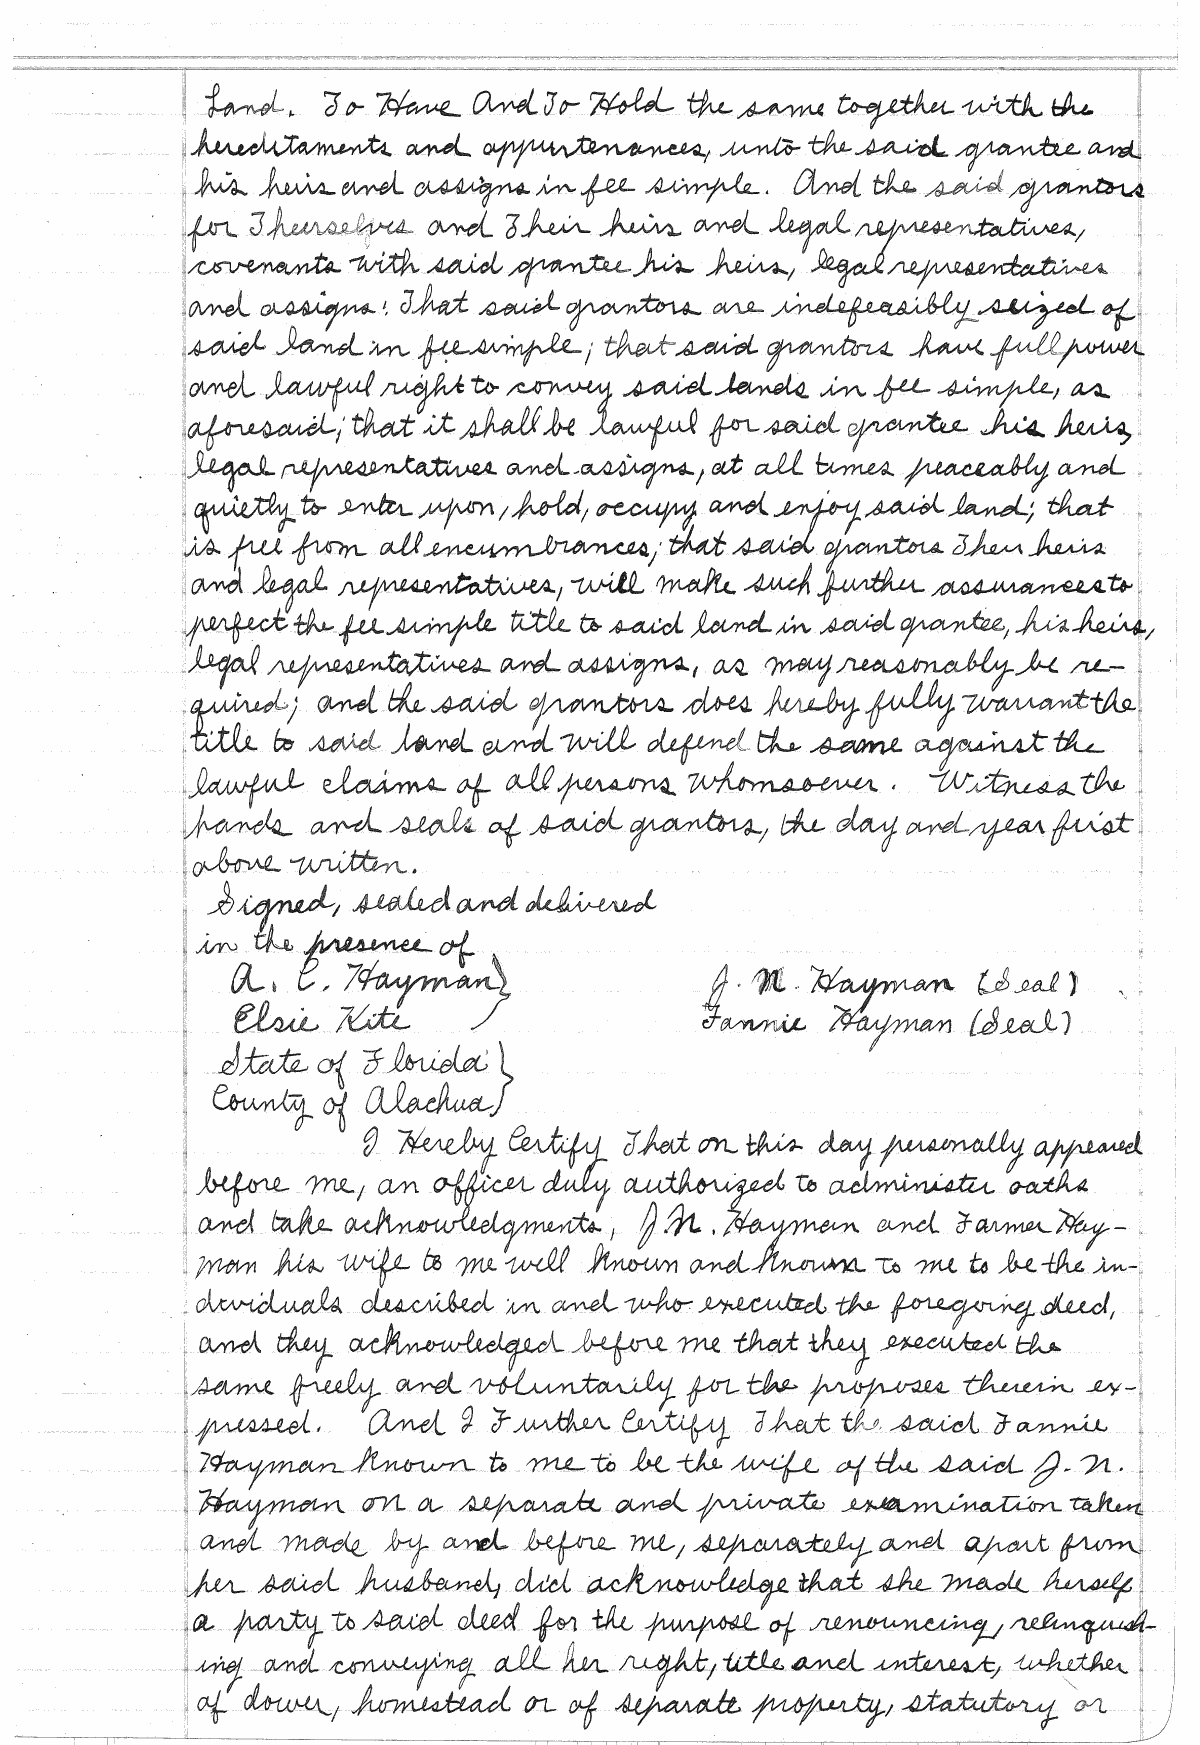 Land. To Have And To Hold the same together with the
hereditaments and appurtenances, unto the said grantee and
his heirs and assigns in fee simple. And the said grantors
for Themselves and Their heirs and legal representatives,
covenants with said grantee his heirs, legal representatives
and assigns: That said grantors are indefeasibly seized of
said land in fee simple; that said grantors have full power
and lawful right to convey said lands in fee simple, as
aforesaid; that it shall be lawful for said grantee his heirs,
legal representatives and assigns, at all times peaceably and
quietly to enter upon, hold, occupy and enjoy said land; that
is free from all encumbrances; that said grantors Their heirs
and legal representatives, will make such further assurances to
perfect the fee simple title to said land in said grantee, his heirs,
legal representatives and assigns, as may reasonably be re-
quired; and the said grantors does hereby fully warrant the
title to said land and will defend the same against the
lawful claims of all persons whomsoever. Witness the
hands and seals of said grantors, the day and year first
above written.
Signed, sealed and delivered
in the presence of
A. C. Hayman } J. N. Hayman (Seal)
Elsie Kite Fannie Hayman (Seal)
State of Florida }
County of Alachua
I Hereby Certify That on this day personally appeared
before me, an officer duly authorized to administer oaths
and take acknowledgments, J.N. Hayman and Farmer Hay-
man his wife to me well known and known to me to be the in-
dividuals described in and who executed the foregoing deed,
and they acknowledged before me that they executed the
same freely and voluntarily for the proposes therein ex-
pressed. And I Further Certify That the said Fannie
Hayman known to me to be the wife of the said J. N.
Hayman on a separate and private examination taken
and made by and before me, separately and apart from
her said husband, did acknowledge that she made herself
a party to said deed for the purpose of renouncing, relinquish-
ing and conveying all her right, title and interest, whether
of dower, homestead or of separate property, statutory or